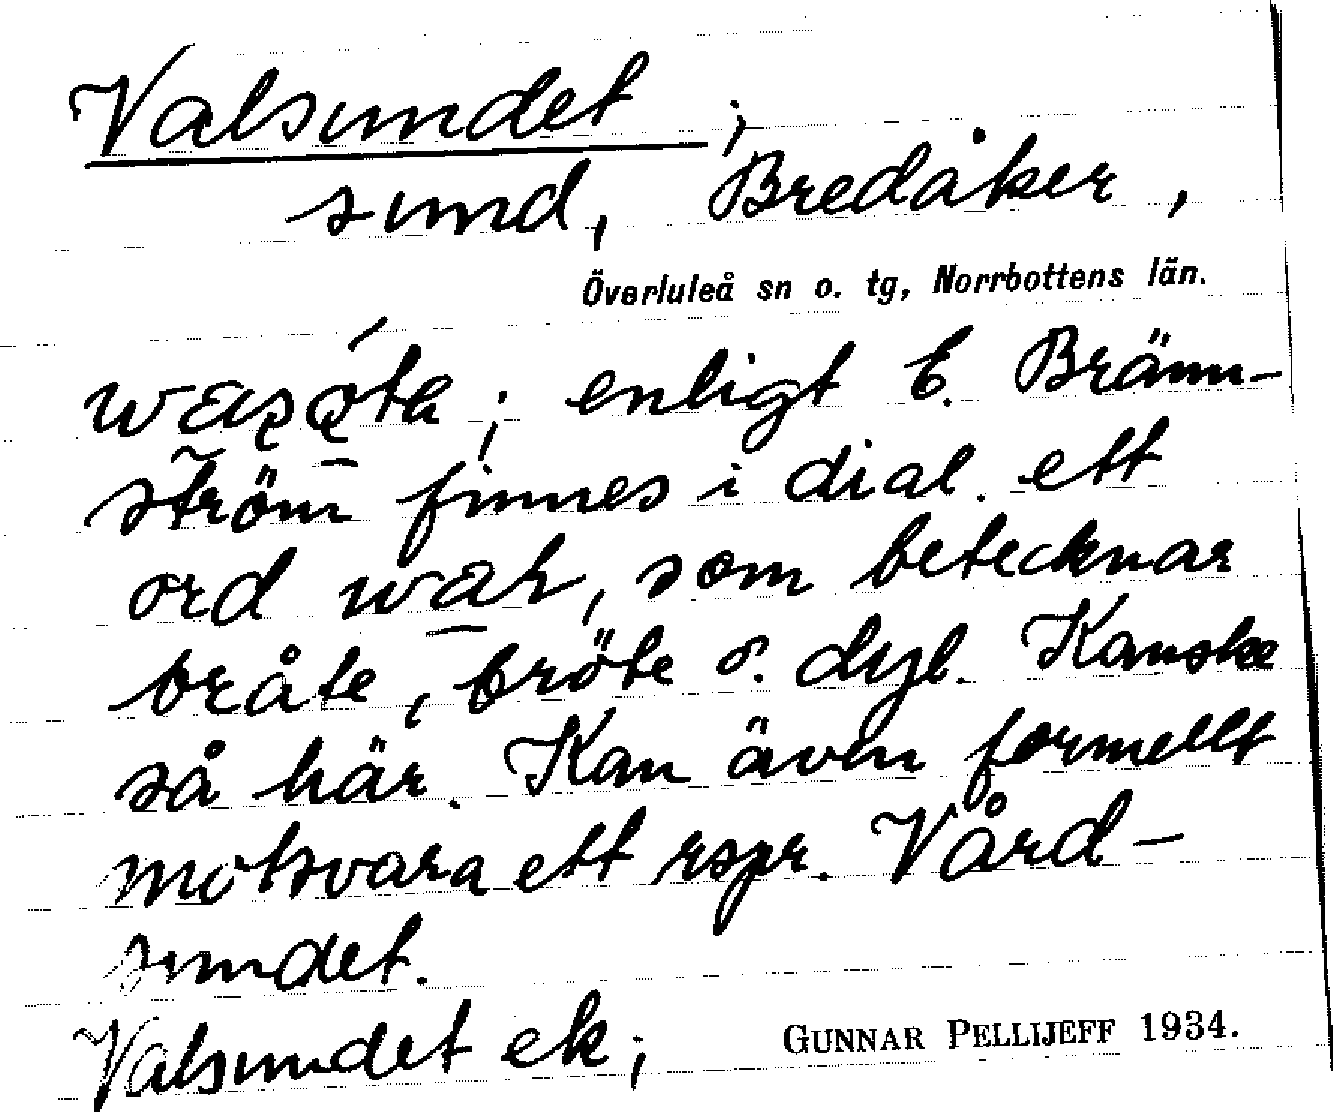 Valsundet;
sund, Bredåker,
Överluleå sn o. tg, Norrbottens län.
enligt E. Bränn-
ström finnes i dial. ett
ord war, som betecknar
bråte, bröte o. dyl. Kanske
så här. Kan även formellt
motsvara ett rspr. Vård-
sundet.
Valsundet ek;
GUNNAR PELLIJEFF 1934.